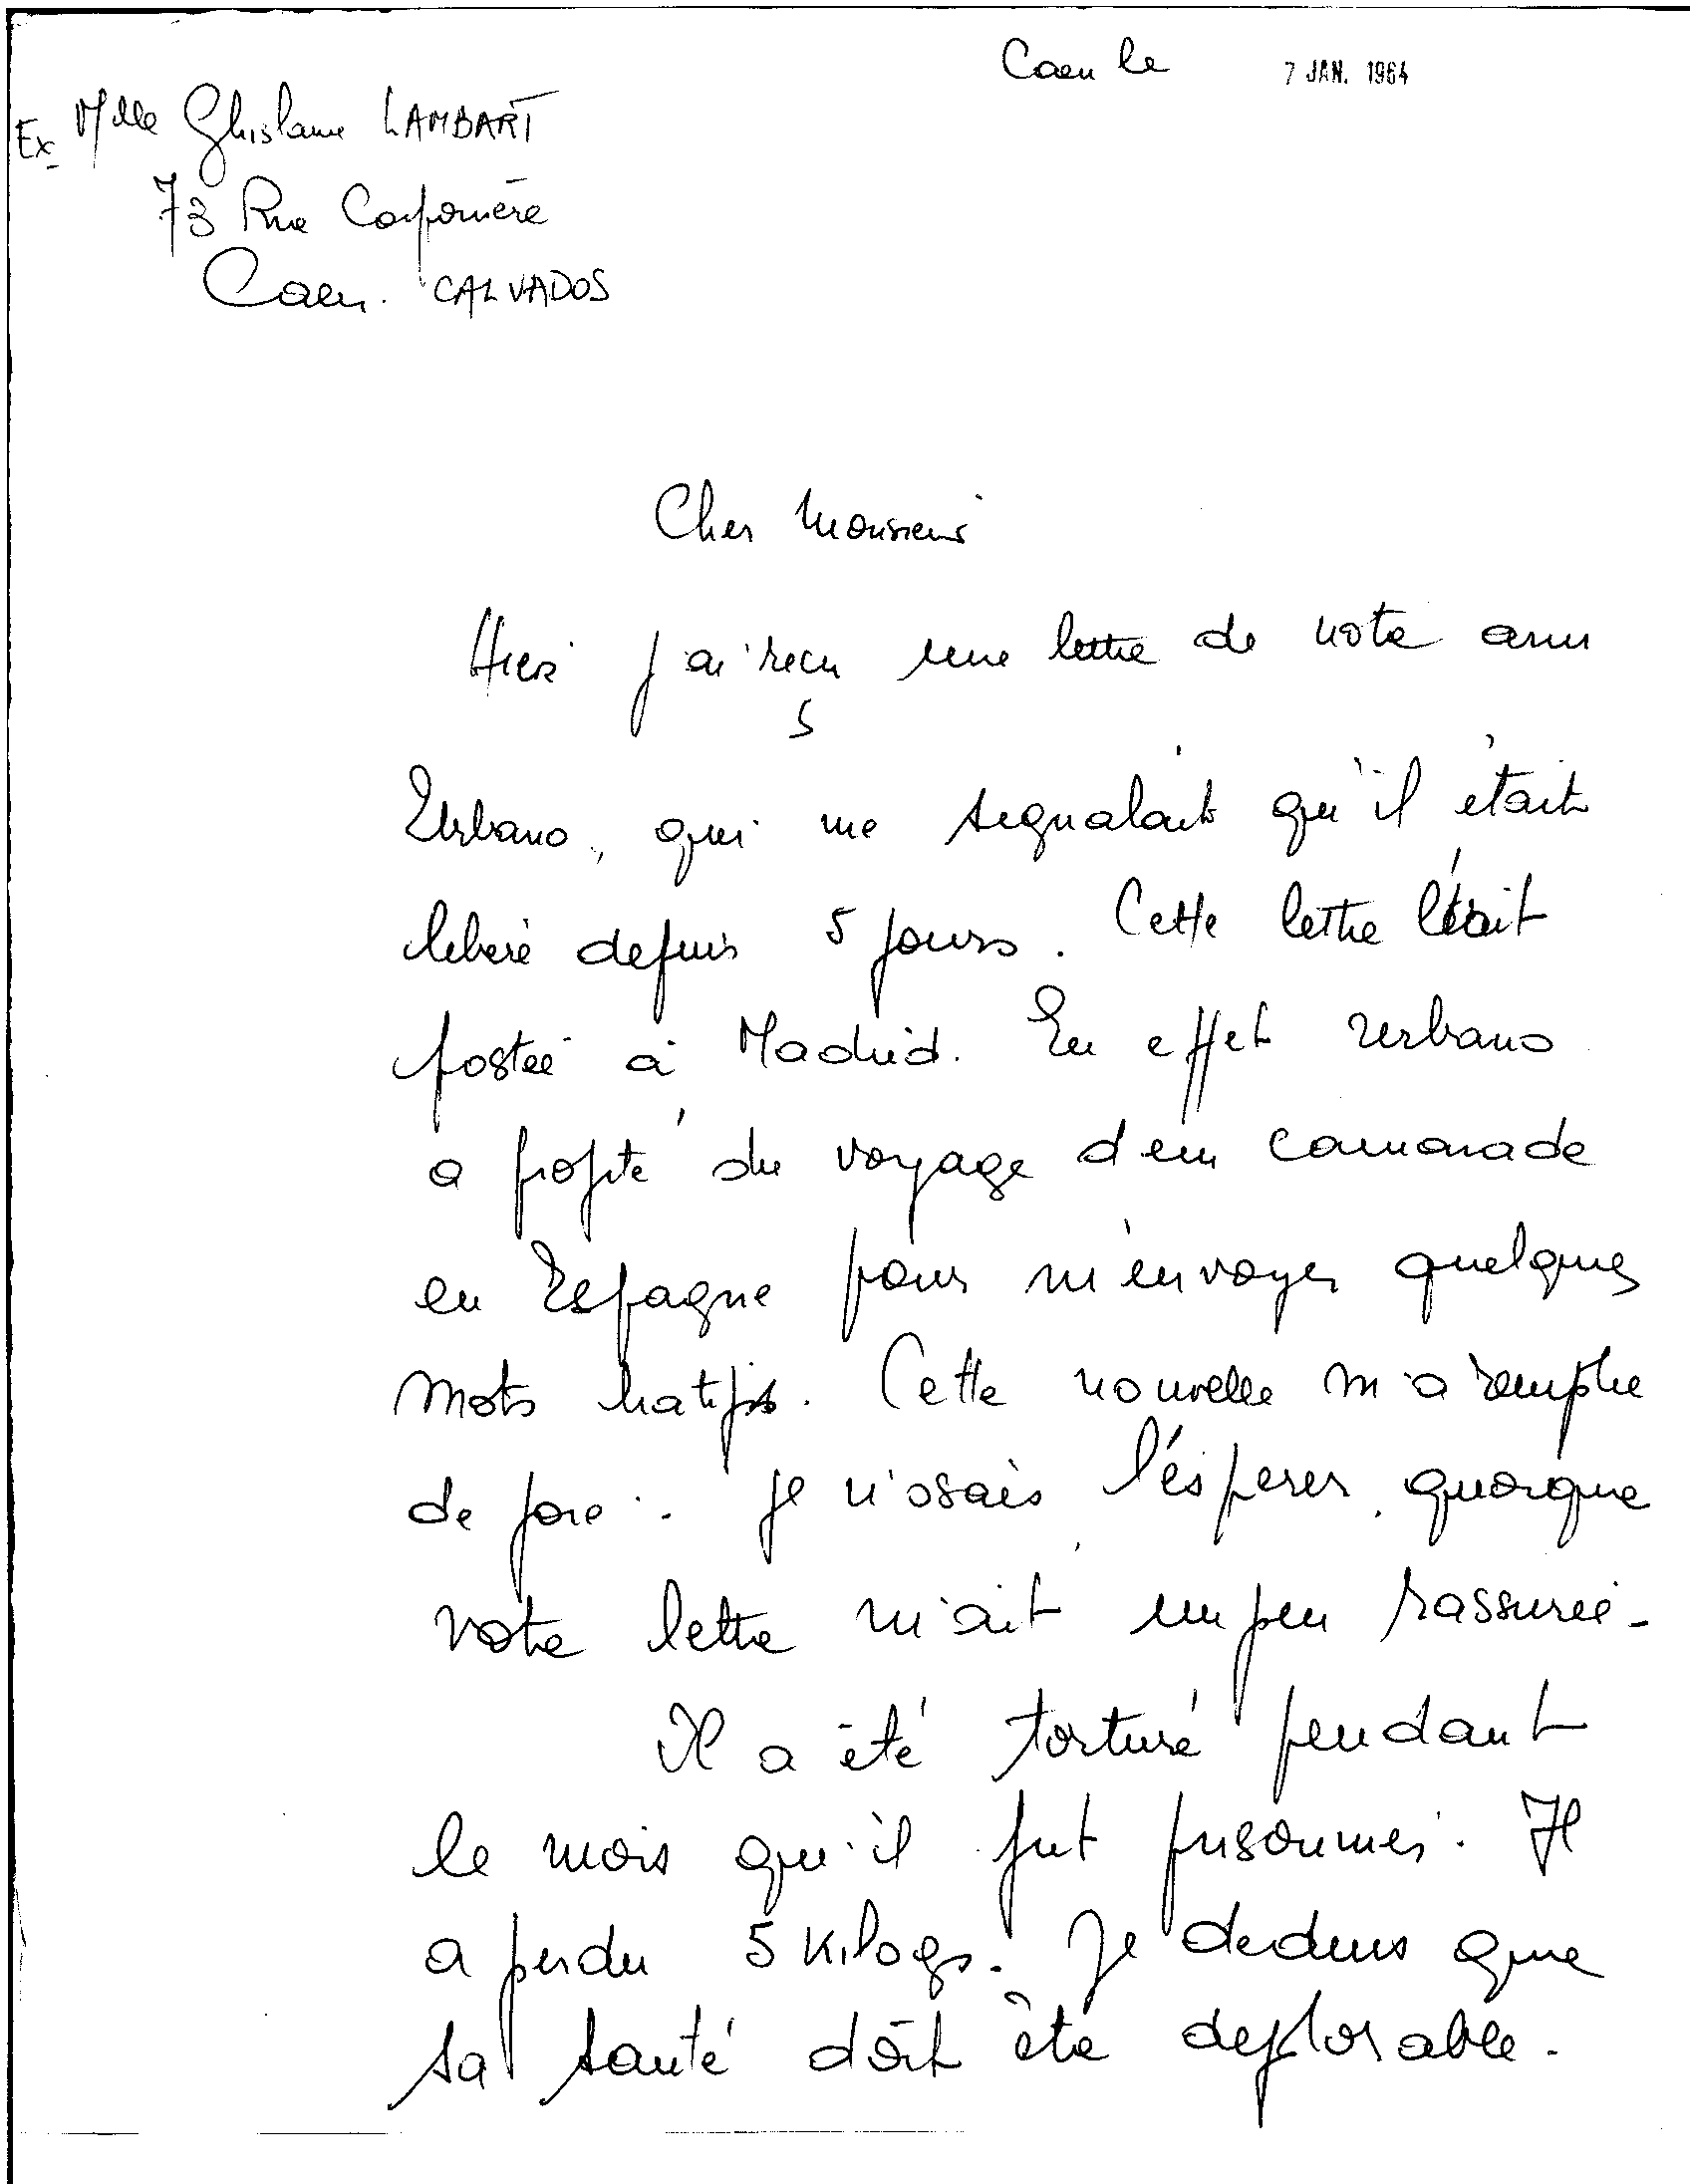 Caen le 7 JAN. 1964
Ex. Mlle Ghislaine LAMBART
73 Rue Caponière
Caen. CALVADOS
Cher Monsieur
Hier j'ai reçu une lettre de notre ami
Urbano, qui me signalait qu'il était
libéré depuis 5 jours. Cette lettre était
postée à Madrid. En effet Urbano
a profité du voyage d'un camarade
en Espagne pour m'envoyer quelques
mots hatifs. Cette nouvelle m'a remplie
de joie. Je n'osais l'éspérer, quoique
votre lettre m'ait un peu rassurée.
Il a été torturé pendant
le mois qu'il fut prisonnier. Il
a perdu 5 Kilogs. Je deduis que
sa santé doit être deplorable.